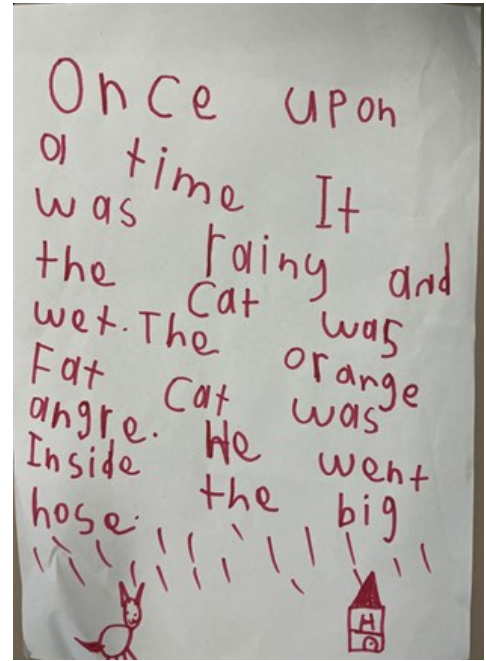 Once upon
a time It
was rainy and
the Cat was
wet. The orange
Fat Cat was
angre. He went
Inside the big
hose.
H